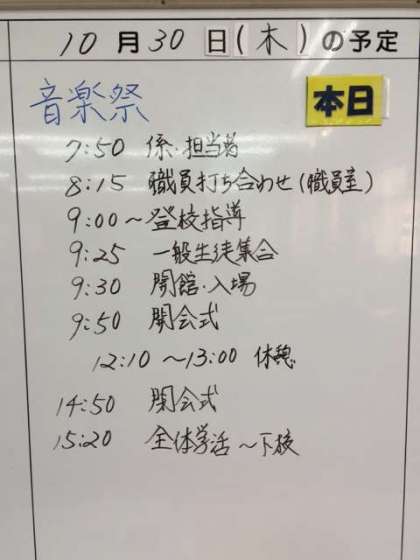 10月30日(木)の予定
音楽祭
本日
7:50 係・担当者
8:15 職員打ち合わせ(職員室)
9:00～登校指導
9:25 一般生徒集合
9:30 開館・入場
9:50 開会式
12:10～13:00 休憩
14:50 閉会式
15:20 全体学活～下校